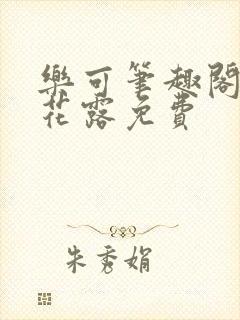 樂可筆趣閣
花露免費
朱秀娟